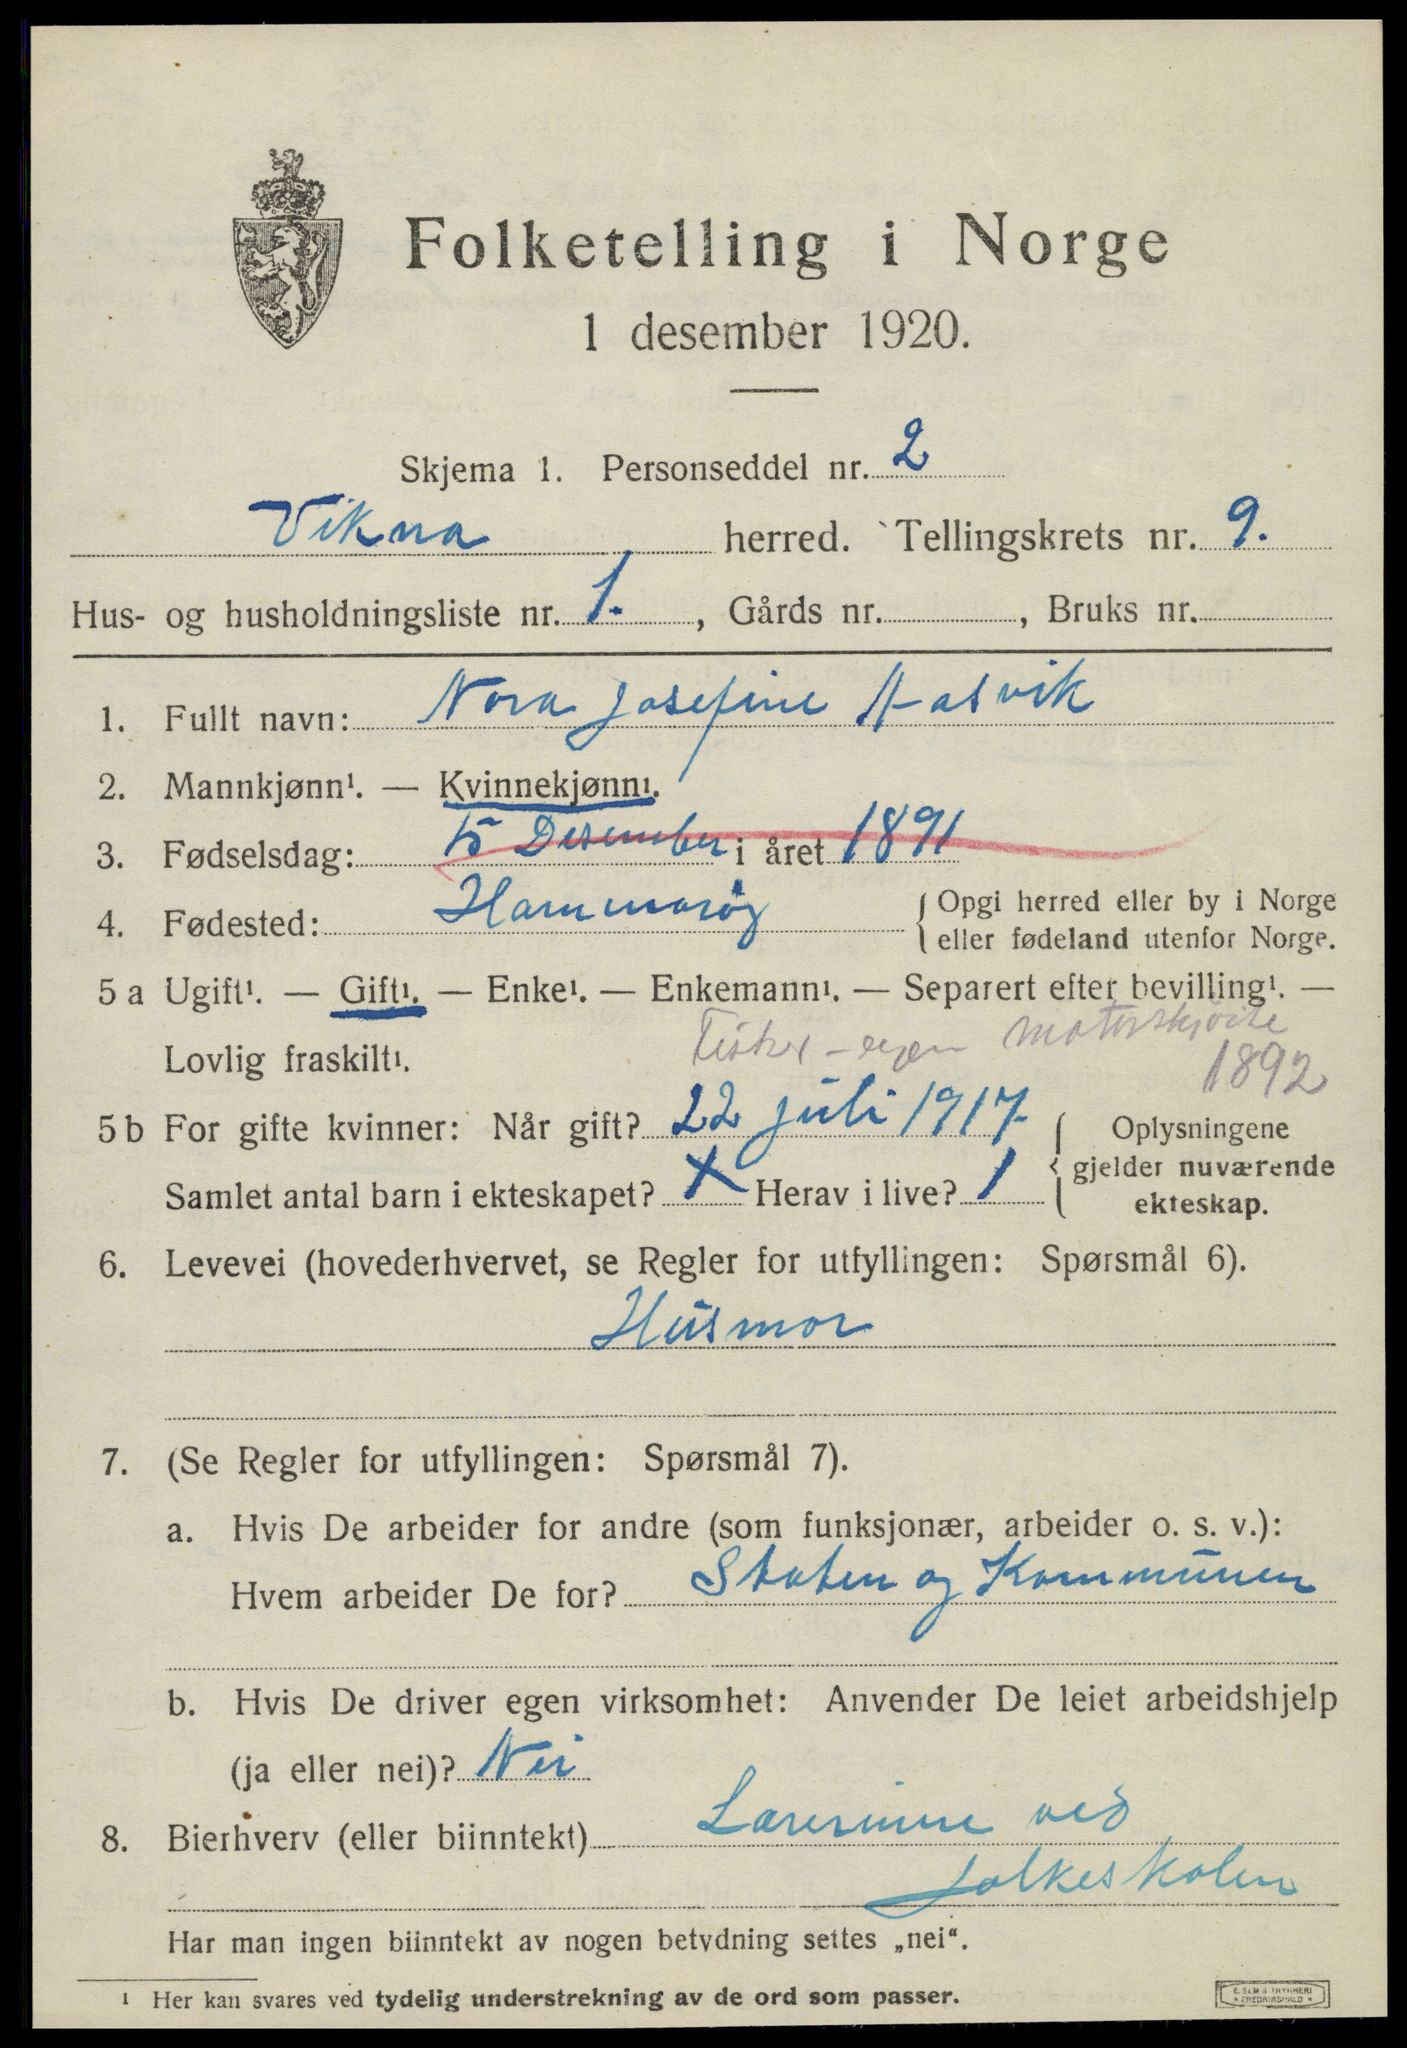 Folketelling i Norge
1 desember 1920.
Skjema 1. Personseddel nr. 2
Vikna herred. Tellingskrets nr. 9.
Hus- og husholdningsliste nr. 1. , Gårds nr. , Bruks nr.
1. Fullt navn: Nora Josefine Hasvik
2. Mannkjønn¹. — Kvinnekjønn¹.
3. Fødselsdag: 15 Desember i året 1891
4. Fødested: Hammarøy { Opgi herred eller by i Norge
eller fødeland utenfor Norge.
5 a Ugift¹. — Gift¹. — Enke¹. — Enkemann¹. — Separert efter bevilling¹. —
Fisker - egen motorskjøite
Lovlig fraskilt¹. 1892
5 b For gifte kvinner: Når gift? 22 juli 1917. { Oplysningene
Samlet antal barn i ekteskapet? 1 Herav i live? 1 gjelder nuværende
ekteskap.
6. Levevei (hovederhvervet, se Regler for utfyllingen: Spørsmål 6).
Husmor
7. (Se Regler for utfyllingen: Spørsmål 7).
a. Hvis De arbeider for andre (som funksjonær, arbeider o. s. v.):
Hvem arbeider De for? Staten og Kommunen
b. Hvis De driver egen virksomhet: Anvender De leiet arbeidshjelp
(ja eller nei)? Nei
8. Bierhverv (eller biinntekt) Lærerinne ved
folkeskolen
Har man ingen biinntekt av nogen betydning settes „nei“.
¹ Her kan svares ved tydelig understrekning av de ord som passer.
E. SEM'S TRYKKERI
FREDRIKSHALD